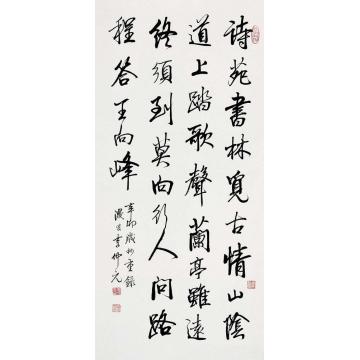 詩苑書林覓古情山陰
道上踏歌聲蘭亭雖遠
終須到莫向行人問路
程答王向峰
辛卯歲初重錄
李仲元